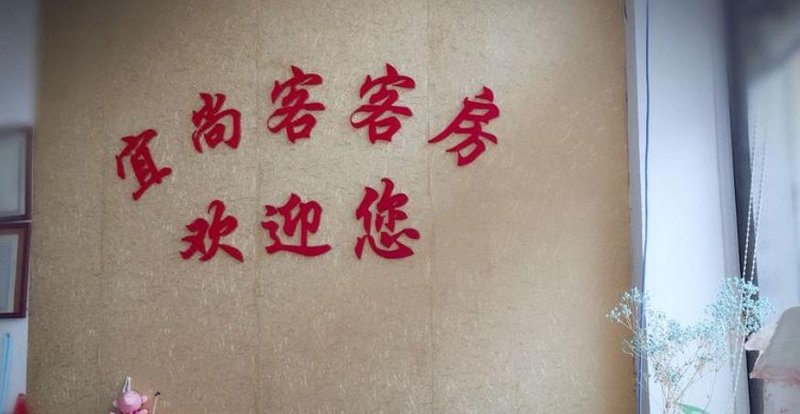 宜尚客客房
欢迎您